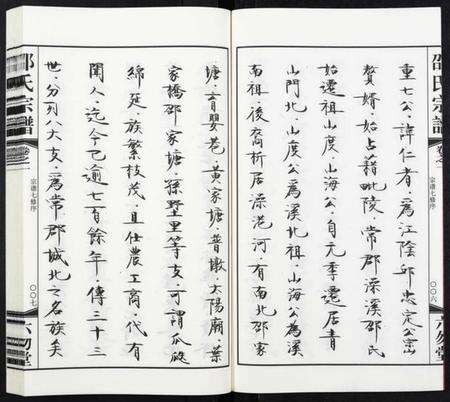 邵氏宗譜
卷之
宗譜七修序
〇〇六
六勿堂
重七公，諱仁者，爲江陰邱忠定公宗山
贅婿，始占籍毗陵，常郡溪邵氏
始遷祖山度、山海公，自元季還居青
山門北，山度公爲溪北祖，山海公爲溪
南祖，後裔析居港河，有南北邵家
塘、育嬰巷、黃家塘、普墩、太陽廟、葉
家橋、邵家塘、墅里等支，可謂瓜瓞
綿延，族繁枝茂，且仕農工商，代有
聞人，迄今已逾七百餘年，傳三十三
世，分列八大支，爲常郡城北之名族矣
邵氏宗譜
卷之
宗譜七修序
〇〇七
六勿堂